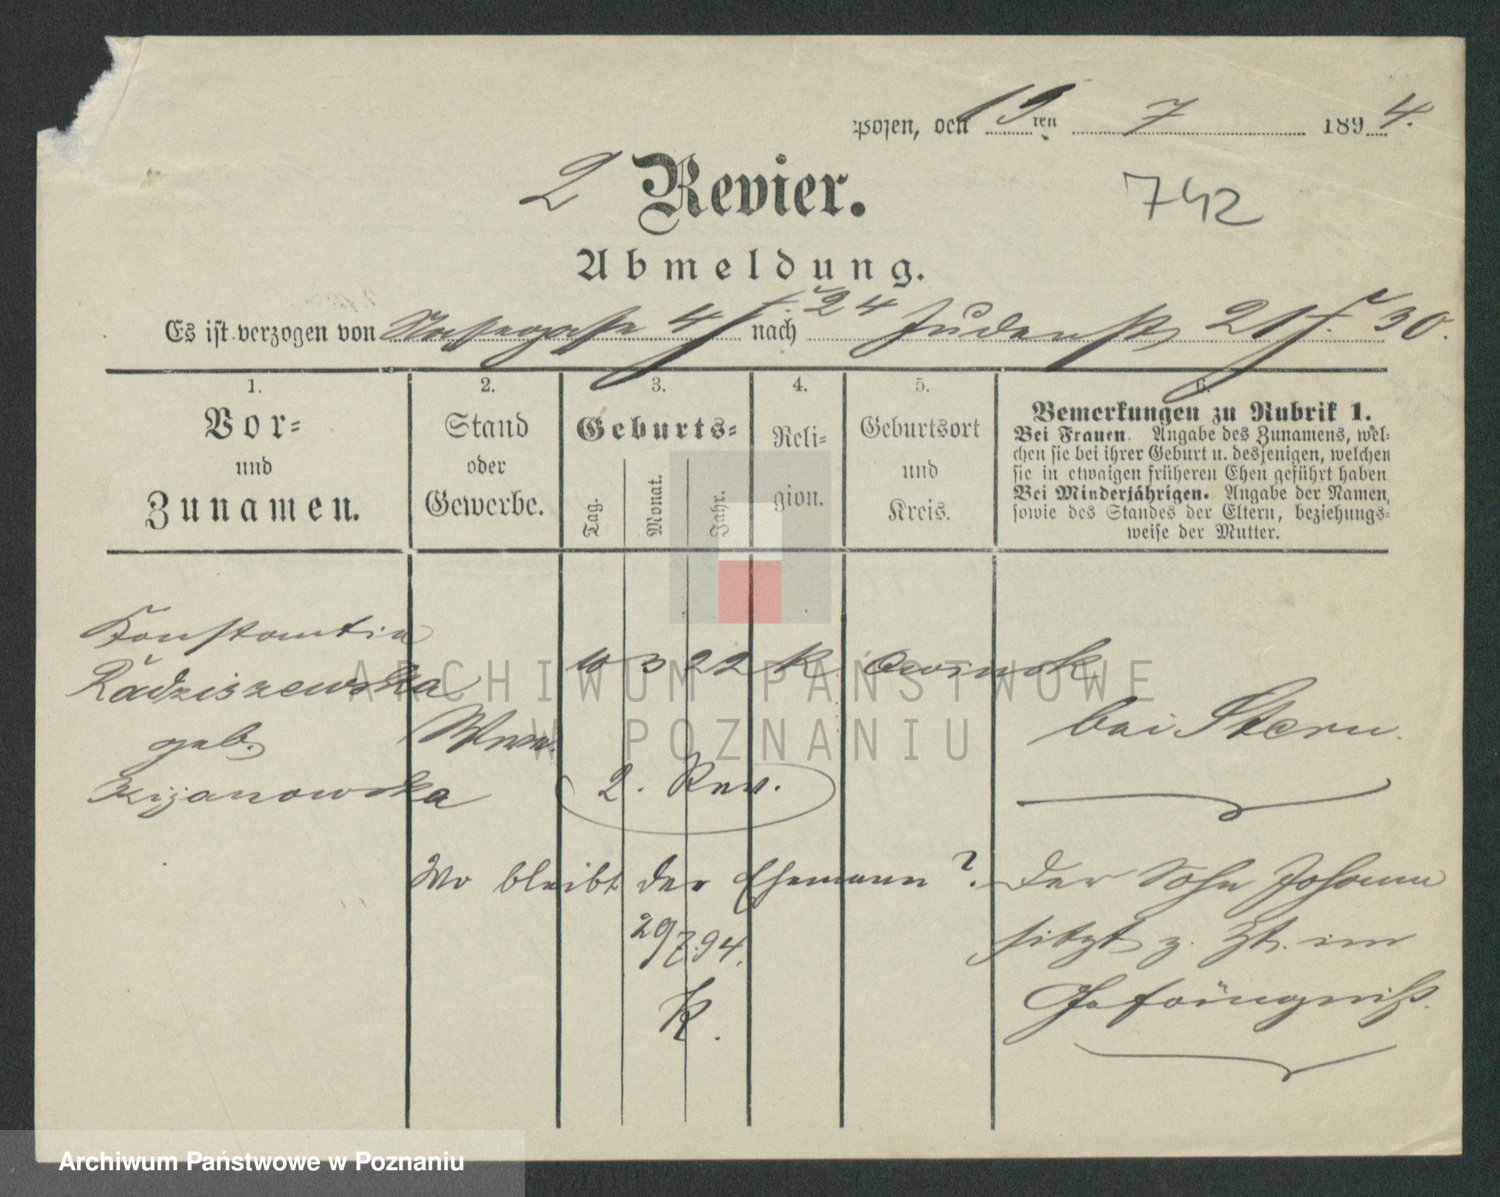 Posen, den 19ten 7 1894.
2 Revier.
742
Abmeldung.
Es ist verzogen von 4 nach Judenstr 21 f. 30.
24
1.
Vor-
und
Zunamen.
2.
Stand
oder
Gewerbe.
3.
Geburts-
Tag.
Monat.
Jahr.
4.
Reli-
gion.
5.
Geburtsort
und
Kreis.
6.
Bemerkungen zu Rubrik 1.
Bei Frauen. Angabe des Zunamens, wel-
chen sie bei ihrer Geburt u. desjenigen, welchen
sie in etwaigen früheren Ehen geführt haben
Bei Minderjährigen. Angabe der Namen,
sowie des Standes der Eltern, beziehungs-
weise der Mutter.
Konstantia
Radziszewska
geb.
Rzizanowska
Wwe.
10 3 22 K. Owinsk
bei Stern.
2. Rev.
Wo bleibt der Ehemann?
29/7.94.
K.
Der Sohn Johann
sitzt z. Zt. im
Gefängniß.
ARCHIWUM PAŃSTWOWE
W POZNANIU
Archiwum Państwowe w Poznaniu